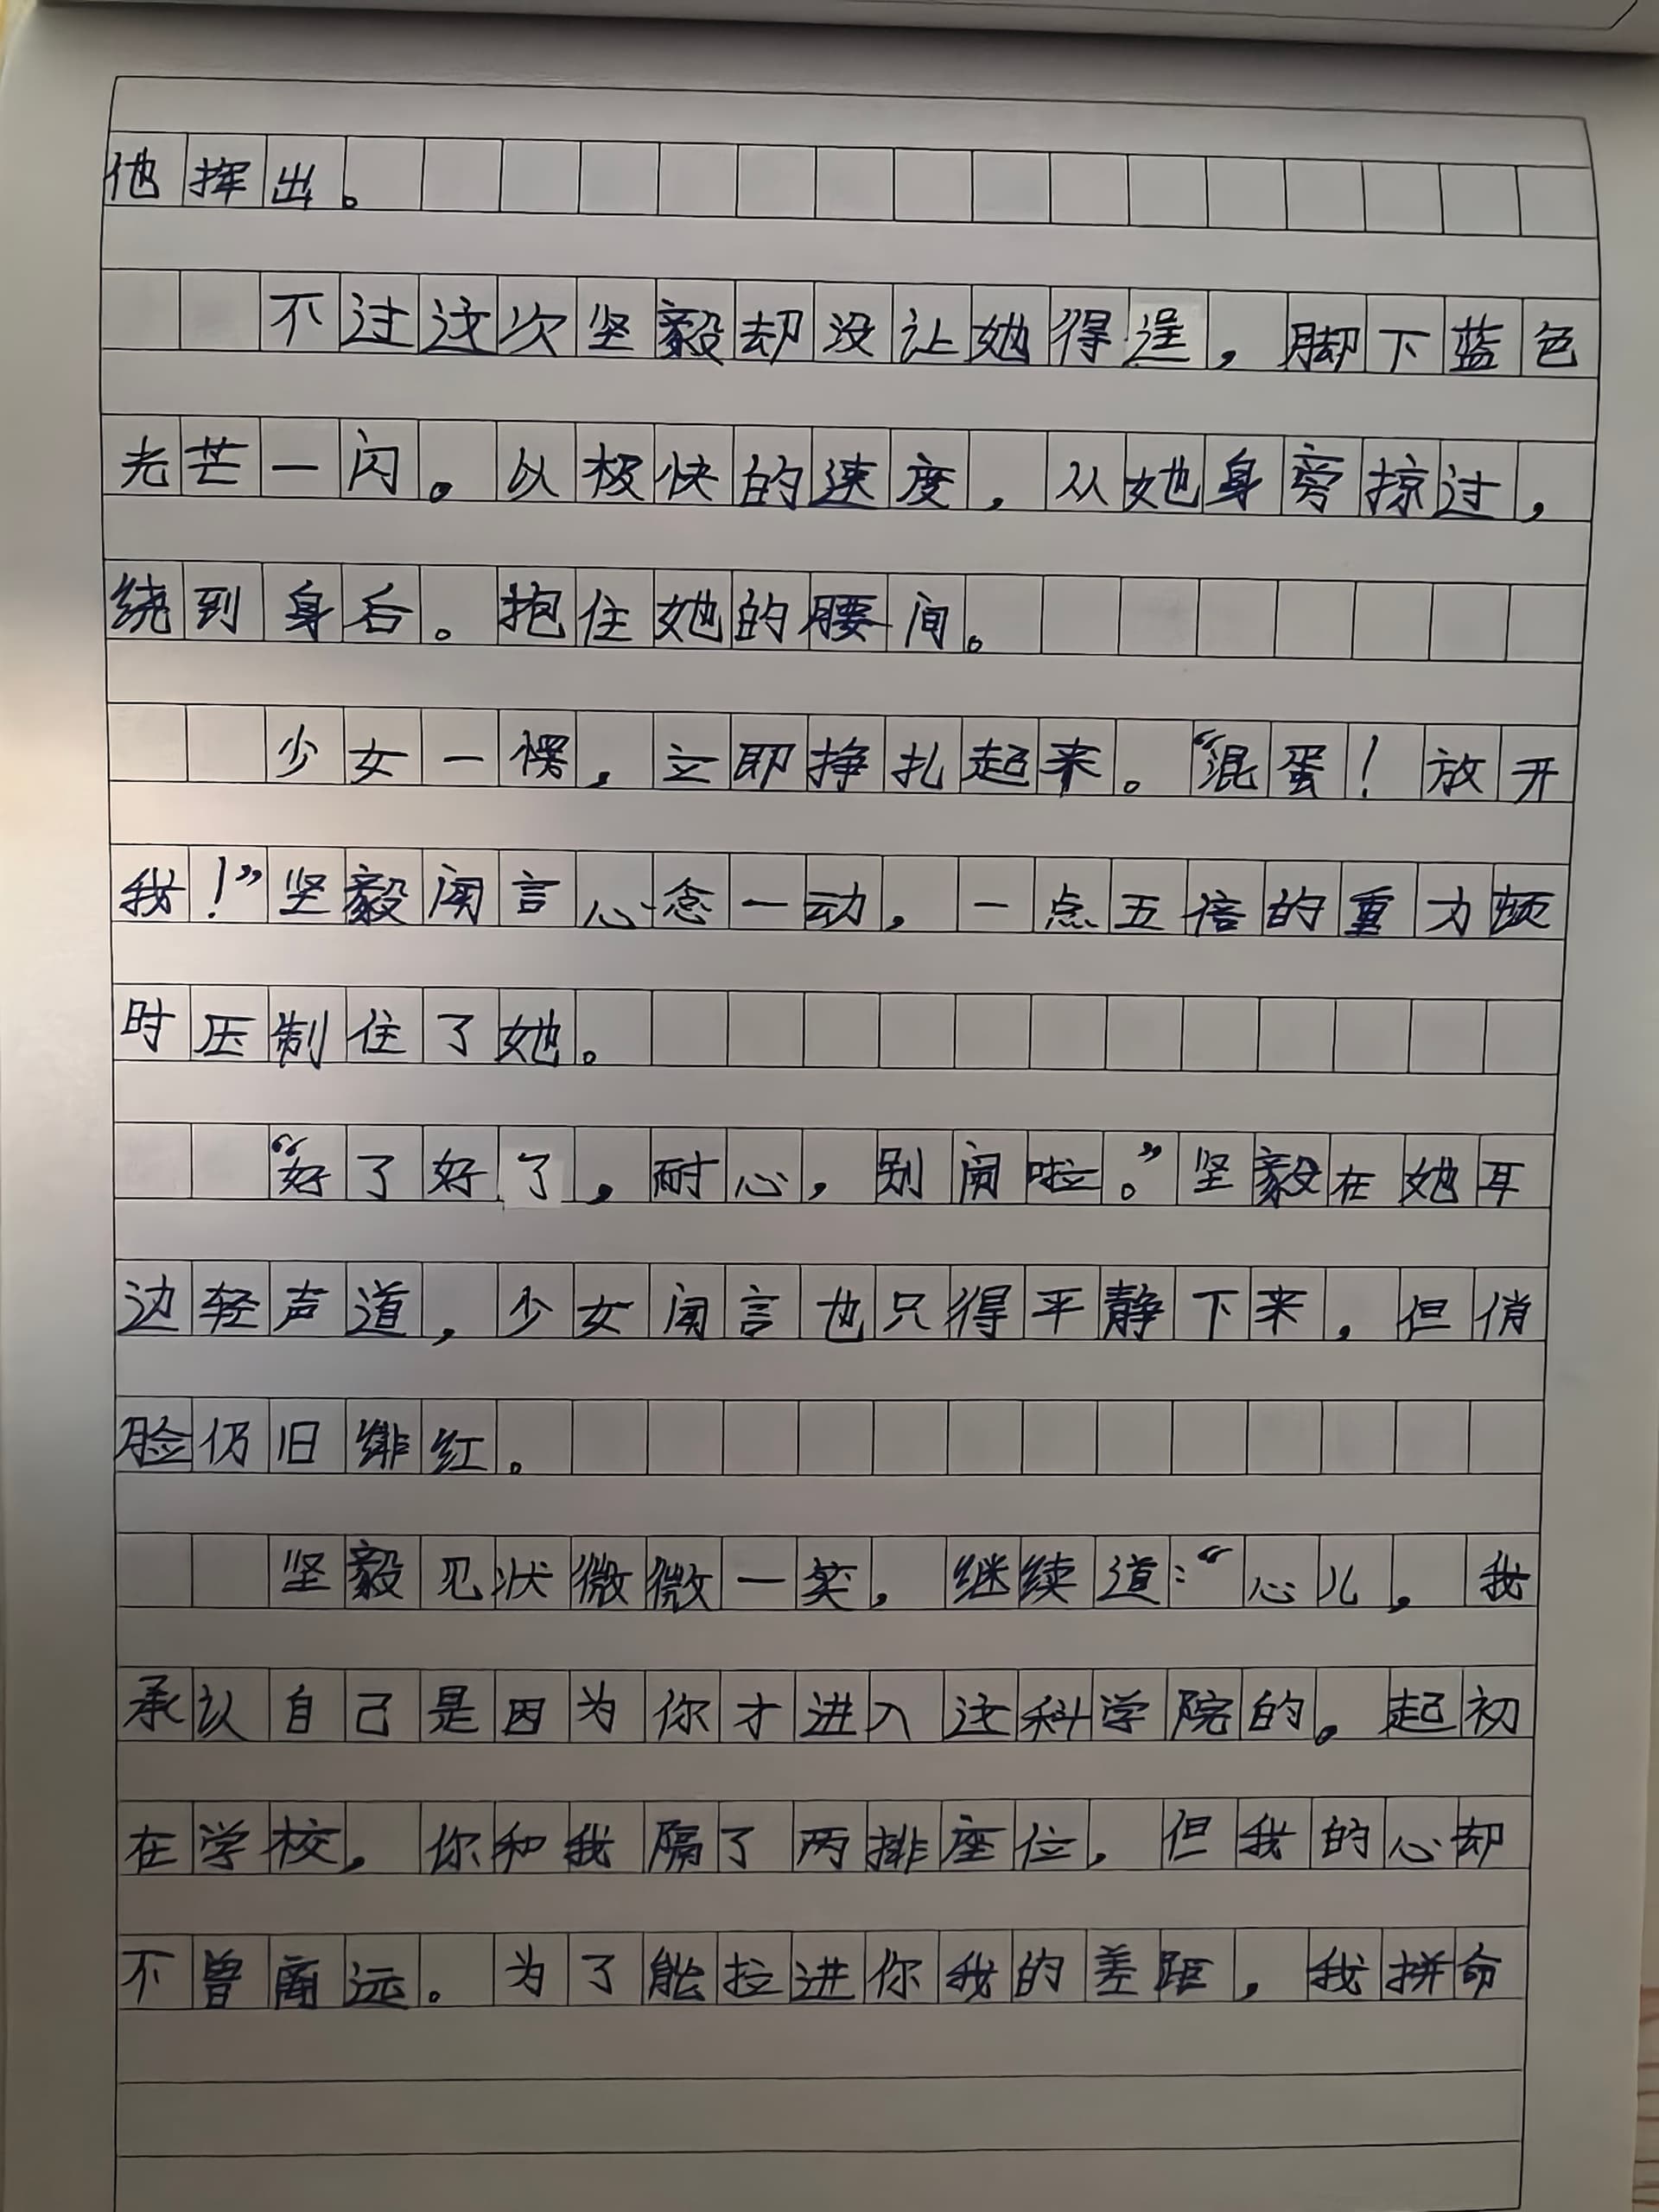 他挥出。
不过这次坚毅却没让她得逞，脚下蓝色
光芒一闪。以极快的速度，从她身旁掠过，
绕到身后。抱住她的腰间。
少女一愣，立即挣扎起来。“混蛋！放开
我！”坚毅闻言心念一动，一点五倍的重力顿
时压制住了她。
“好了好了，耐心，别闹啦。”坚毅在她耳
边轻声道，少女闻言也只得平静下来，但俏
脸仍旧绯红。
坚毅见状微微一笑，继续道：“心儿，我
承认自己是因为你才进入这科学院的。起初
在学校，你和我隔了两排座位，但我的心却
不曾离远。为了能拉进你我的差距，我拼命